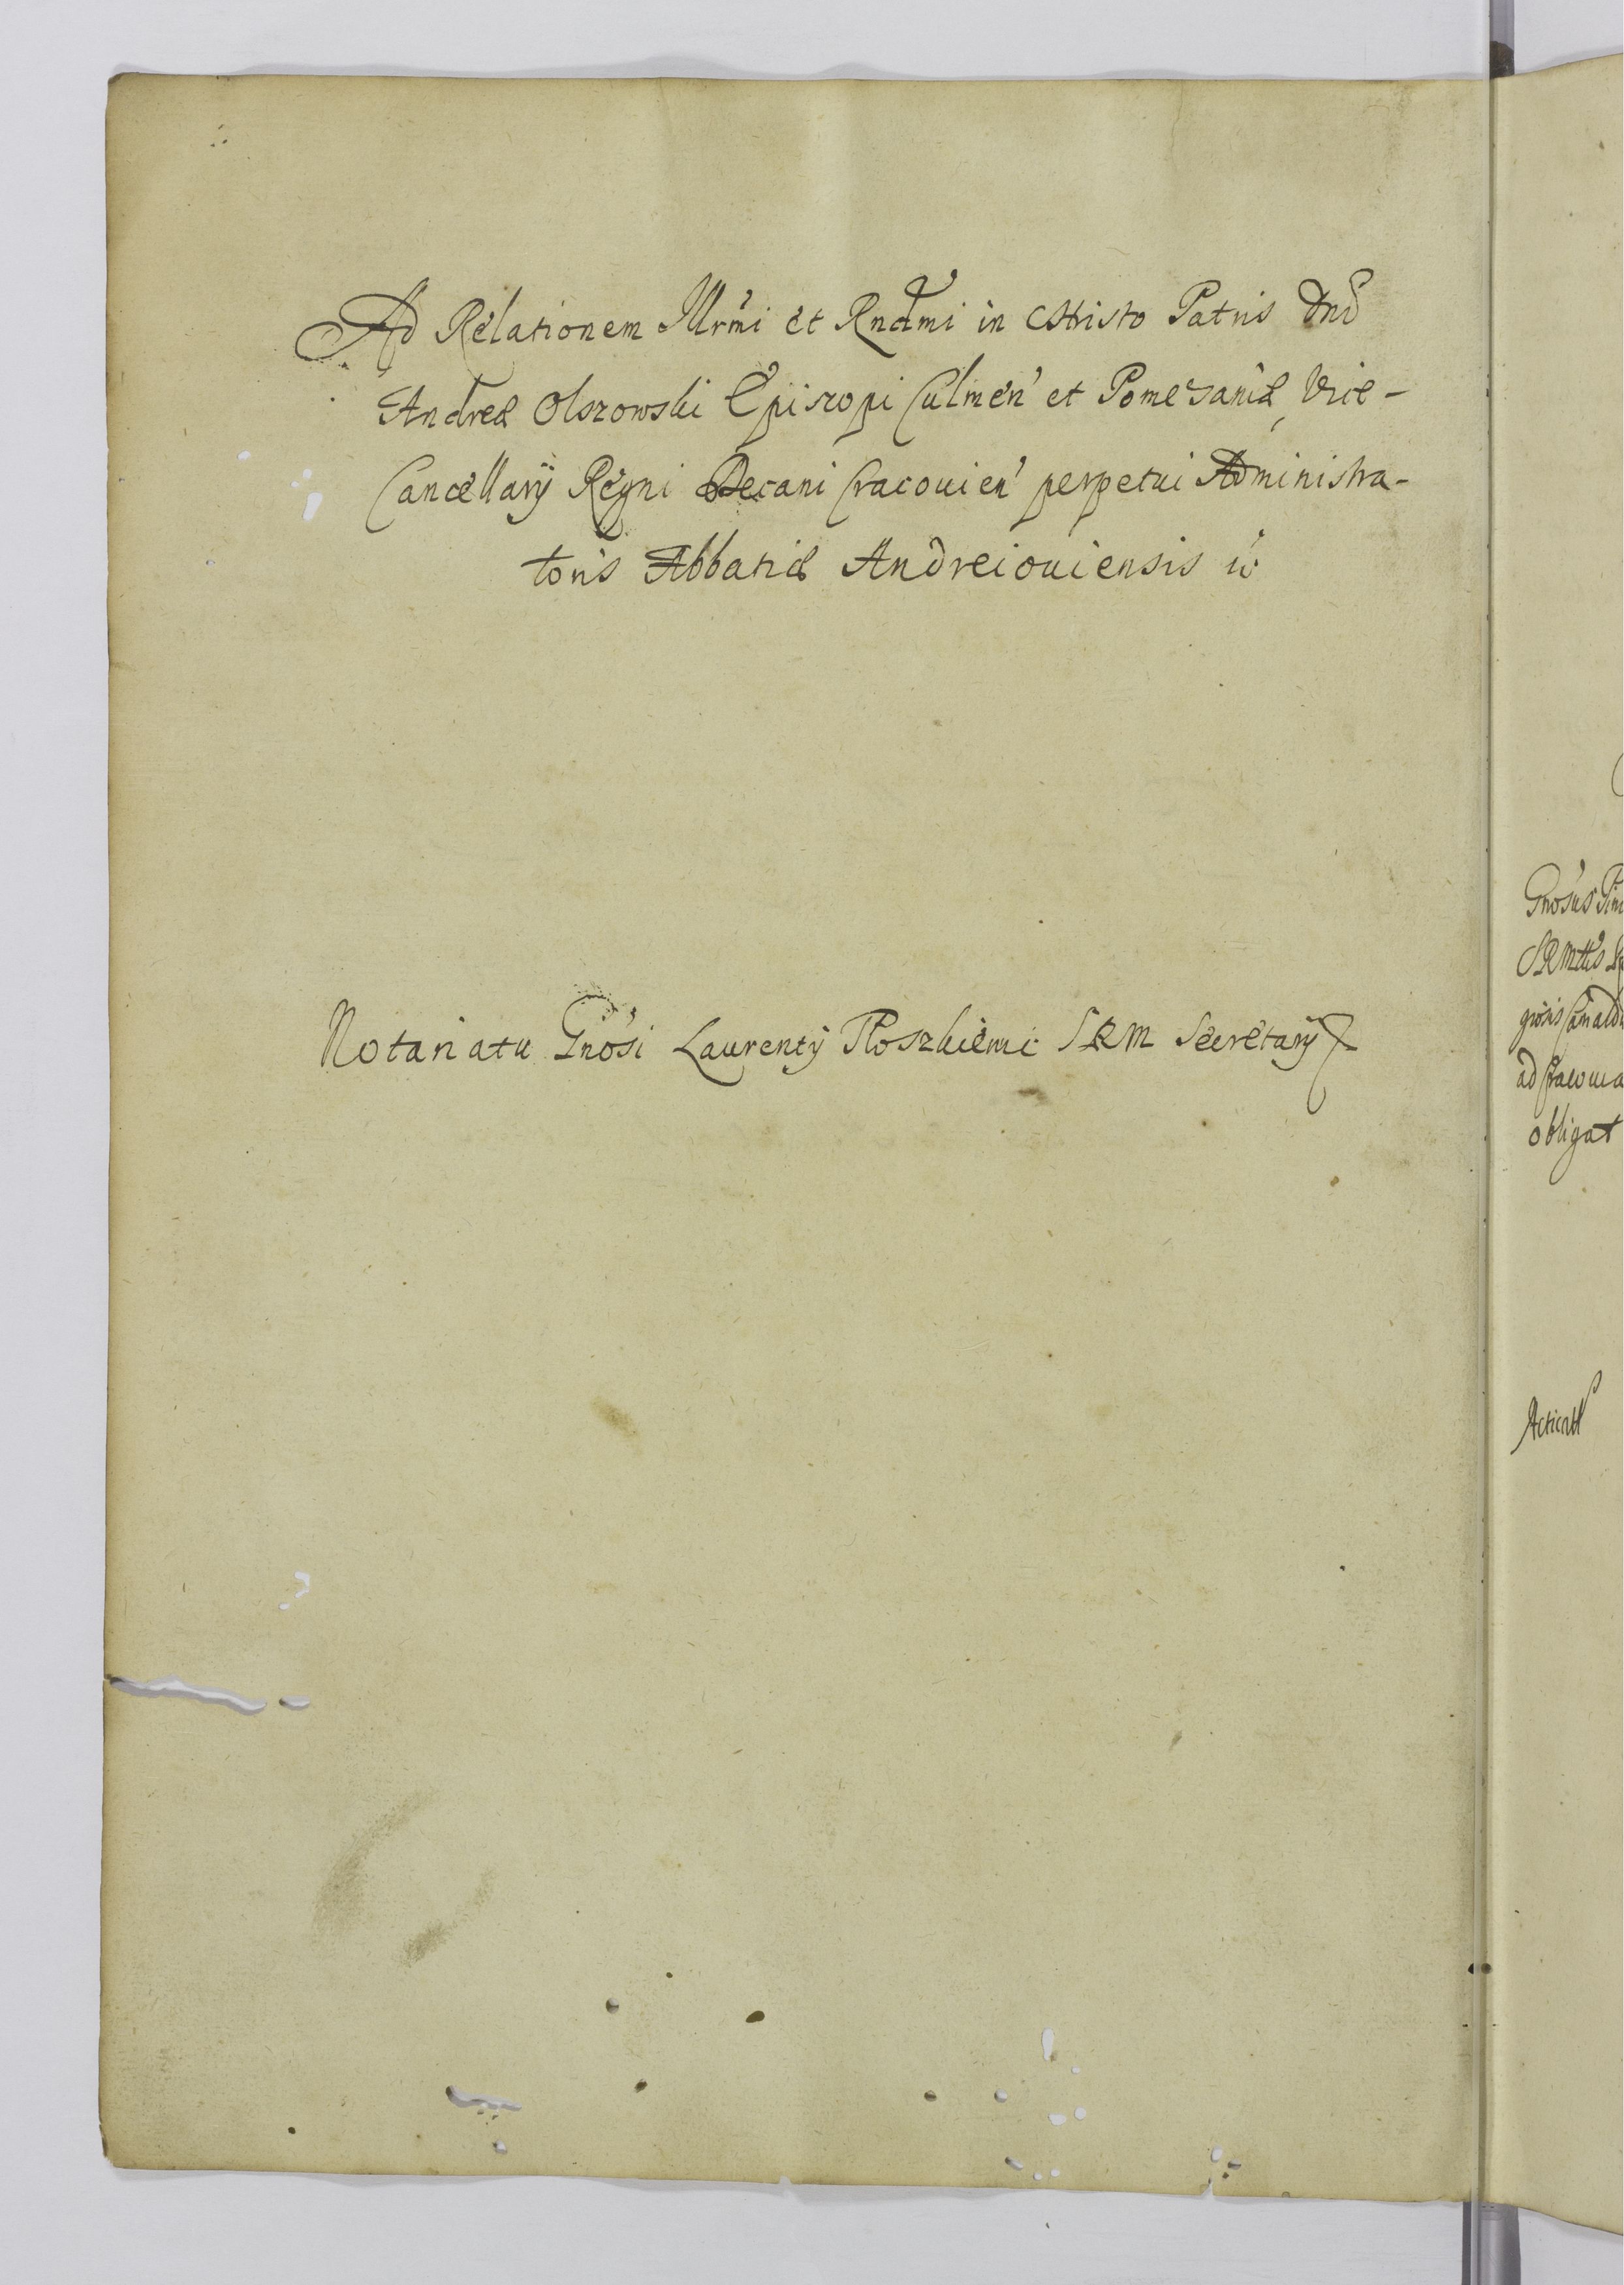 Ad Relationem Illrmi et Rndmi in Christo Patris Dnd
Andreæ Olszowski Episcopi Culmen' et Pomesaniæ, Vice-
Cancellarÿ Regni Decani Cracouien' perpetui Administra-
toris Abbatiæ Andreiouiensis
Notariatu Gnosi Laurentÿ SRM Secretarÿ
Gnosus
SRMttis
ad Cracouia
obligat